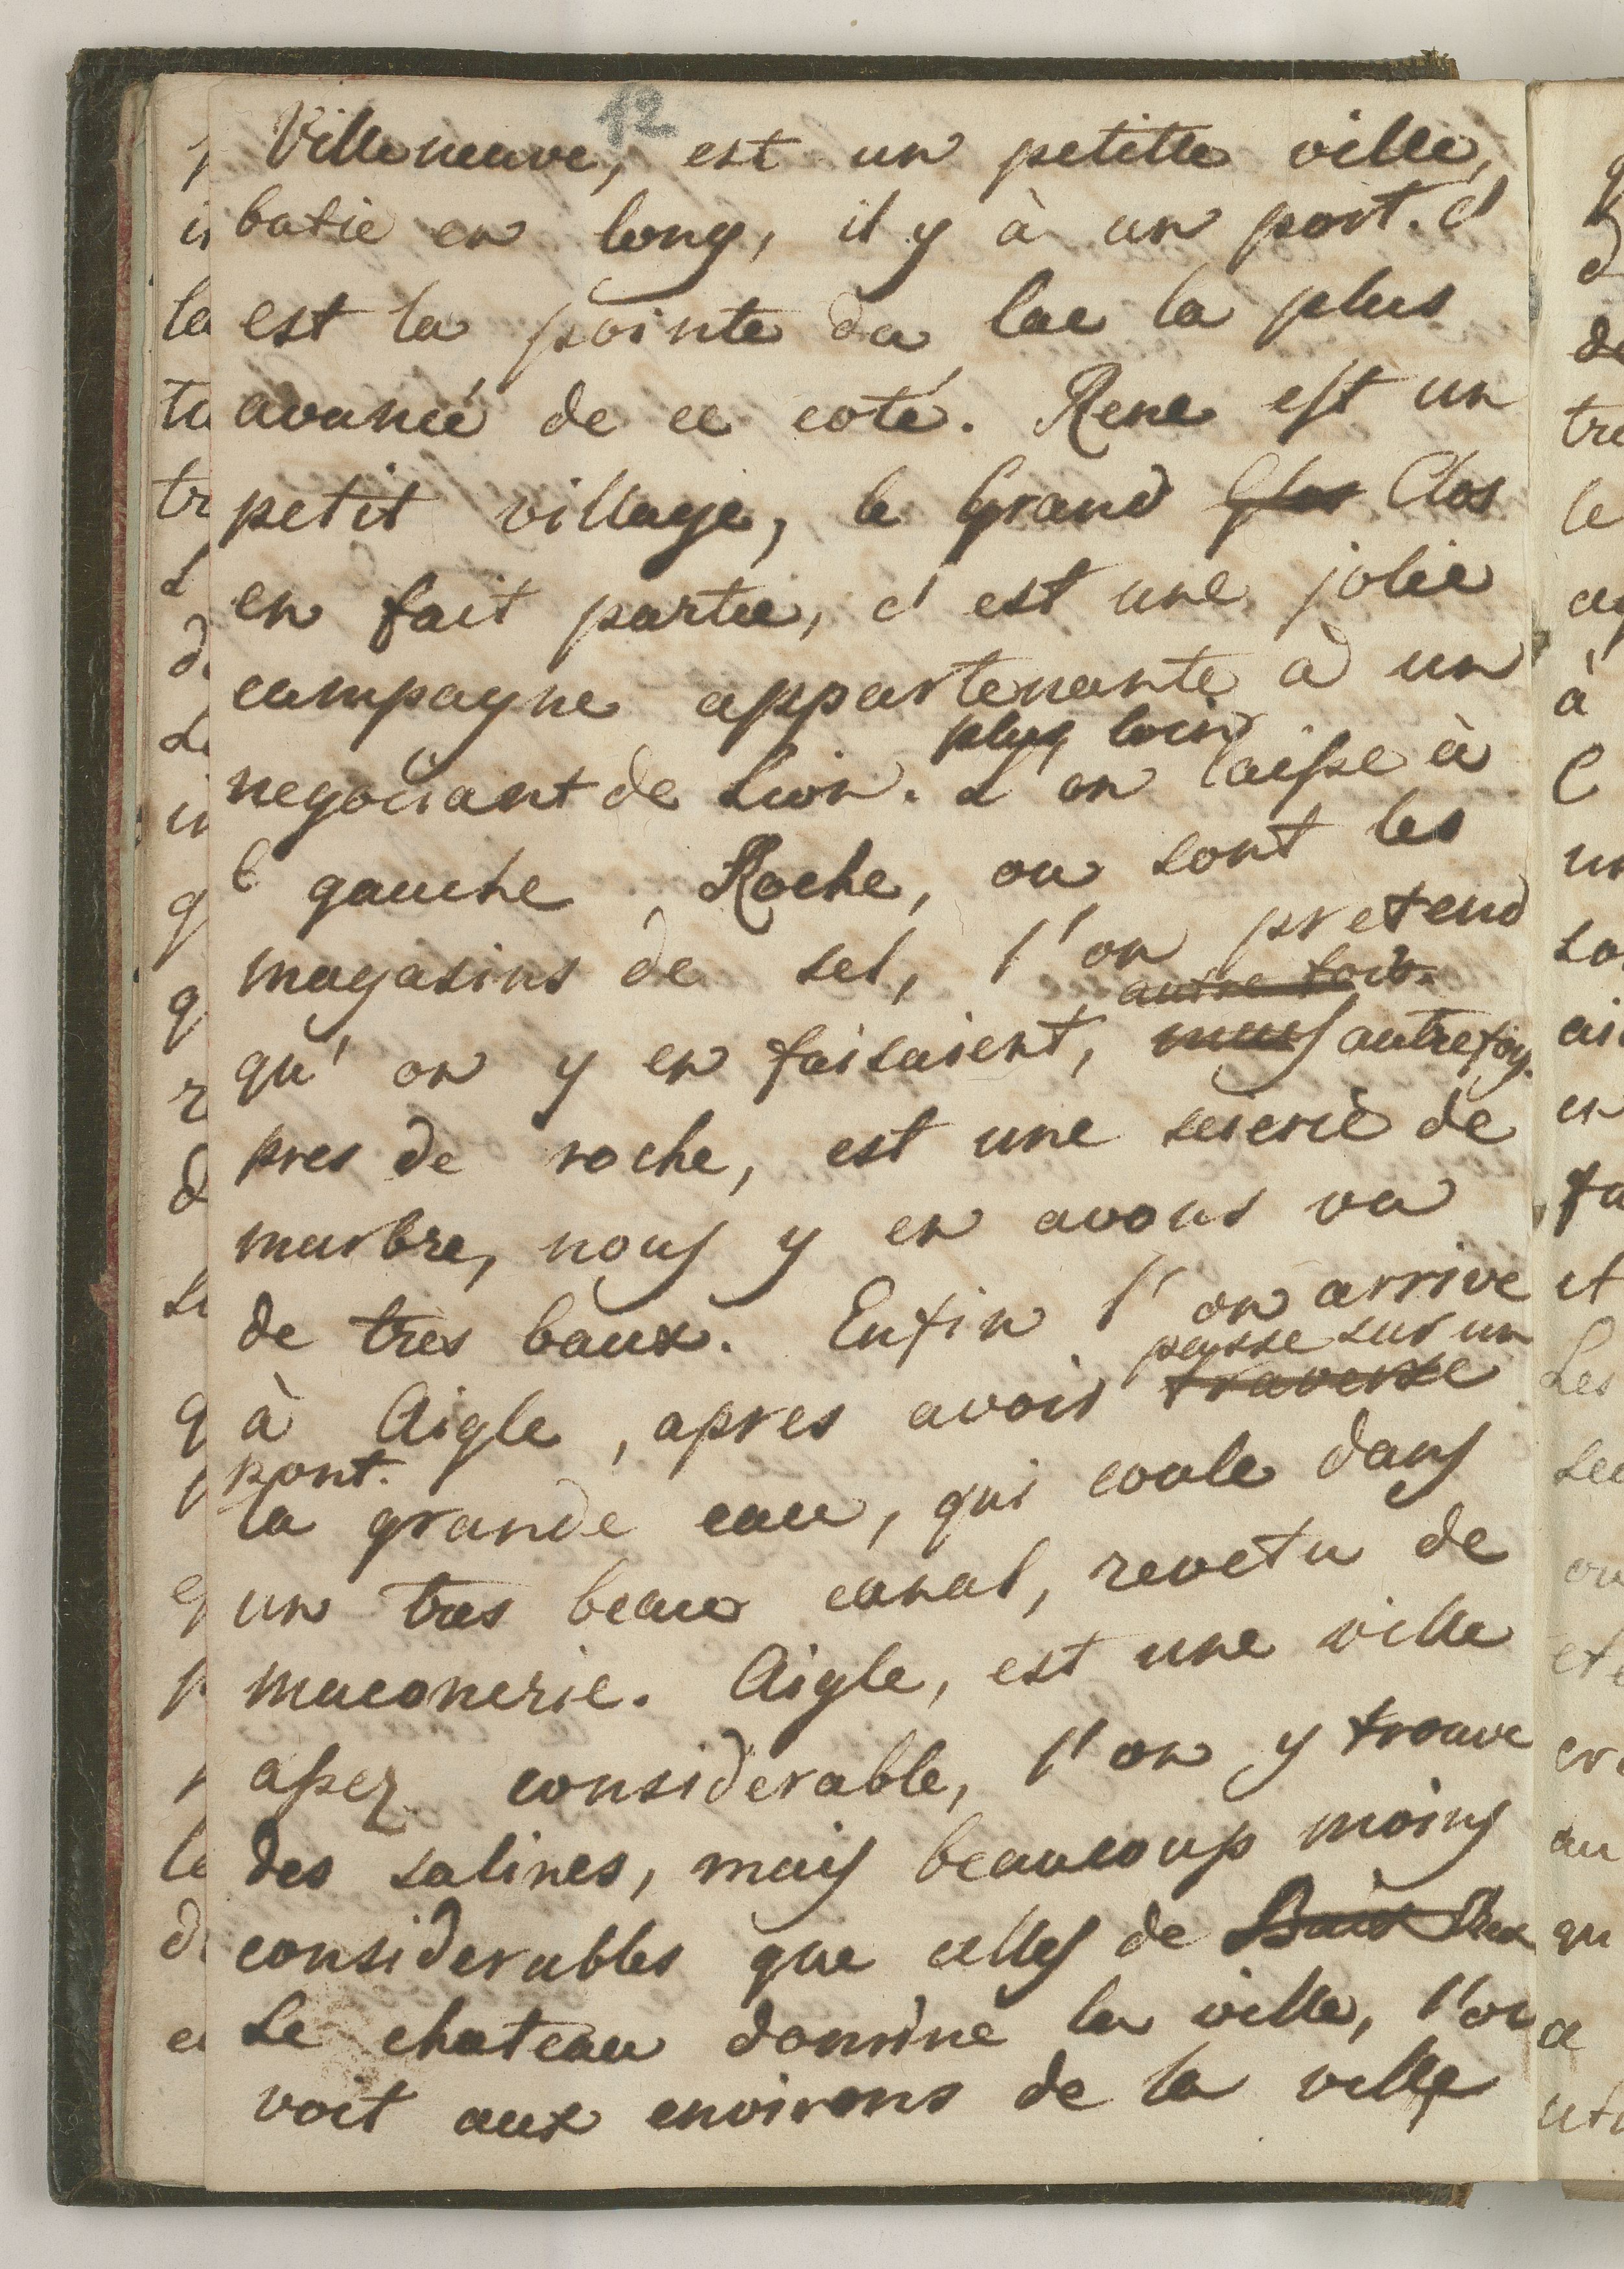 12
Villeneuve, est un petitte ville,
batie en long, il y à un port. c'
est la pointe du lac la plus
avancé de ce coté. Rene est un
petit village, le Grand Clos
en fait partie, c' est une jolie
campagne appartenante à un
plus loin
negociant de Lion. L'on laisse à
gauche Roche, ou sont les
magasins de sel, l'on pretend
autre fois
qu' on y en faisaient, mais autrefois.
pres de roche, est une scierie de
marbre, nous y en avons vu
de très baux. Enfin l'on arrive
passe sur un
à Aigle, apres avoir traverse
pont.
la grande eau, qui coule dans
un tres beau canal, revetu de
maconerie. Aigle, est une ville
assez considerable, l'on y trouve
des salines, mais beaucoup moins
considerables que celles de Baix Bex
Le chateau domine la ville, l'on
voit aux environs de la ville